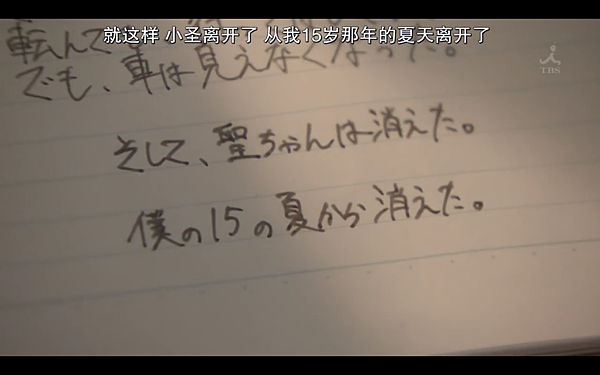 就这样 小圣离开了 从我15岁那年的夏天离开了
転んで
でも、車は見えなくなった。
TBS
そして、聖ちゃんは消えた。
僕の15の夏から消えた。